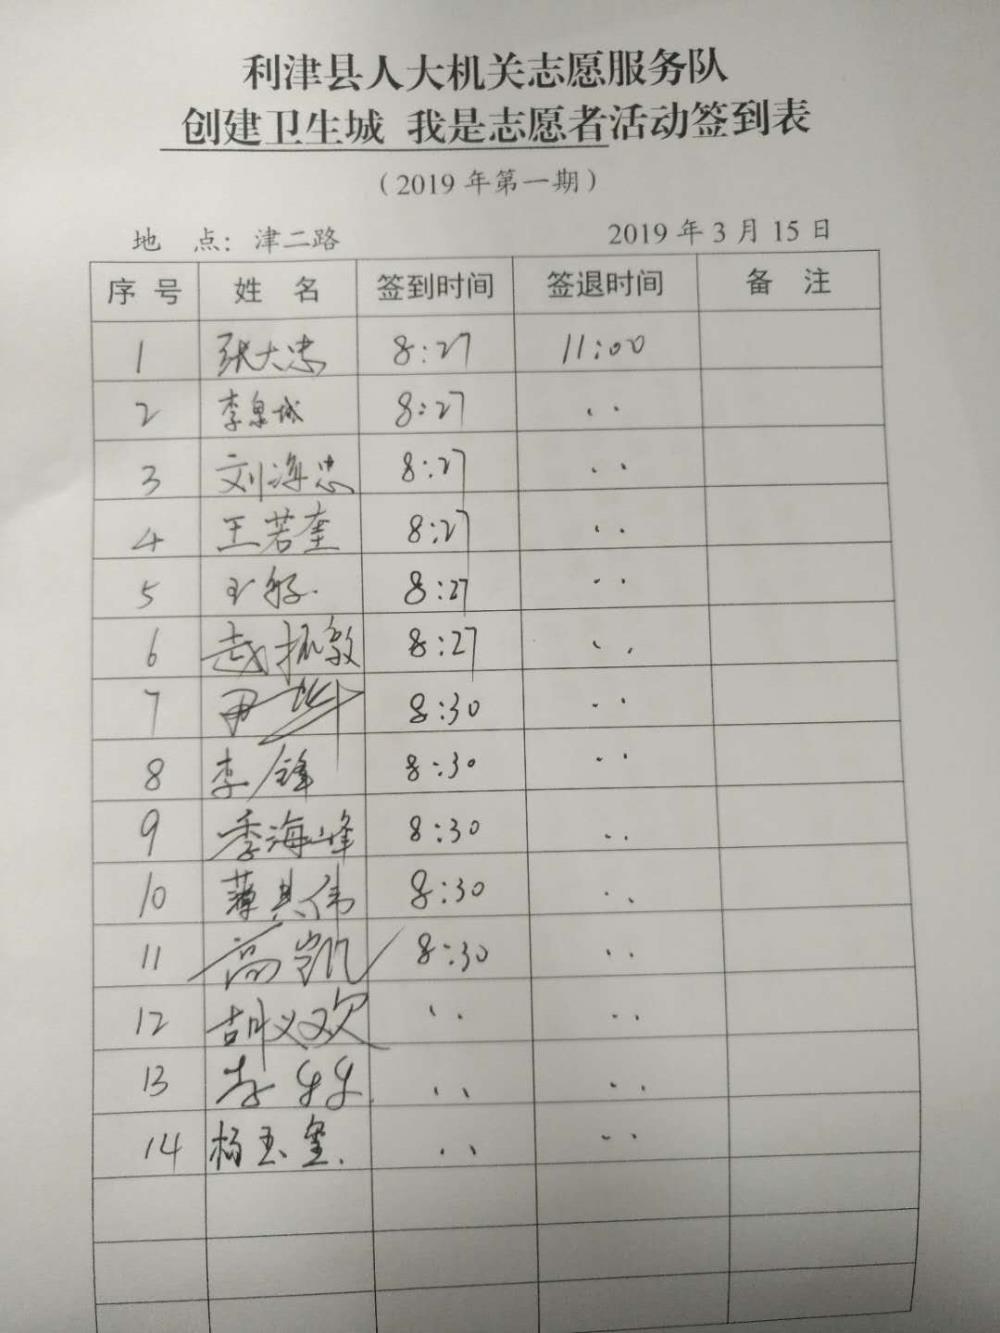 利津县人大机关志愿服务队
创建卫生城 我是志愿者活动签到表
（2019年第一期）
地 点：津二路 2019年3月15日
序号 姓名 签到时间 签退时间 备注
1 张大忠 8:27 11:00
2 李泉城 8:27 〃
3 刘海忠 8:27 〃
4 王若奎 8:27 〃
5 8:27 〃
6 赵振毅 8:27 〃
7 尹 8:30 〃
8 李锋 8:30 〃
9 季海峰 8:30 〃
10 薄其伟 8:30 〃
11 高凯 8:30 〃
12 胡义欢 〃 〃
13 李 〃 〃
14 杨玉玺 〃 〃